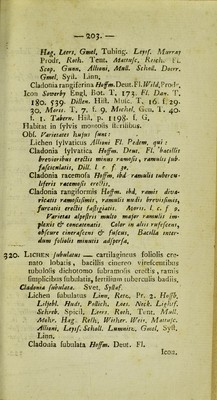 203
Hag. Leers, Gmel, Tubing. Leysf. Murray
Prodr, Roth. Tent. Mattusc,
Scop. Gunn, Allioni, Mull. Schul. Doerr,
Gmel, Syst. Linn,
Cladonia rangiferina Hoffm. Deut. Fl. Wild, Prodr,
Icon Sowerby Engl, Bot. T. 173. Fl. Dan. T.
180. 539. Dillen. Hist. Musc. T. 16. f. 29.
30. Moris. T. 7. f. 9. Michel. Gen. T. 40.
f. 1. Tabern. Hist. p. 1198. f. G,
Habitat in sylvis montosis sterilibus.
Obf. Varietates hujus sunt:
Lichen sylvaticus Allioni Fl. Pedem, qui:
Cladonia sylvatica Hoffm. Deut. Fl. bacillis
brevioribus erectis minus ramosis, ramulis sub-
fusciculatis, Dill. l. c. f 30.
Cladonia racemosa Hoffm, ibd ramulis tubercu-
liferis racemosis erectis,
Cladonia rangiformis Hoffm. ibd, ramis diva-
ricatis ramosissimis, ramulis nudis brevissimis,
furcatis erectis fastigiatis. Moris. l. c f 9.
Varietas alpestris multo major ramulis im-
plexis & concatenatis Color in aliis rufescens,
obscure cinerascens & fuscus, Bacilla inter-
dum foliolis minutis adspersa,
320. LICHEN subulatus — cartilagineus foliolis cre-
nato lobatis, bacillis cinereo virescentibus
tubulosis dichotomo subramosis erectis, ramis
simplicibus subulatis, fertilium tuberculis badiis,
Cladonia subulata. Svet, Syllaf.
Lichen subulatus Linn, Retz, Pr. 2. Hoffb,
Liljebl. Huds, Pollich, Loes. Neck. Lightf,
Schreb, Spicil, Leers. Roth, Tent. Mull,
Mohr. Hag. Relh, Wither. Weis, Mattusc,
Allioni, Leysf. Scholl. Lumnitz, Gmel, Syst,
Linn,
Cladonia subulata Hoffm. Deut. Fl.
Icon.